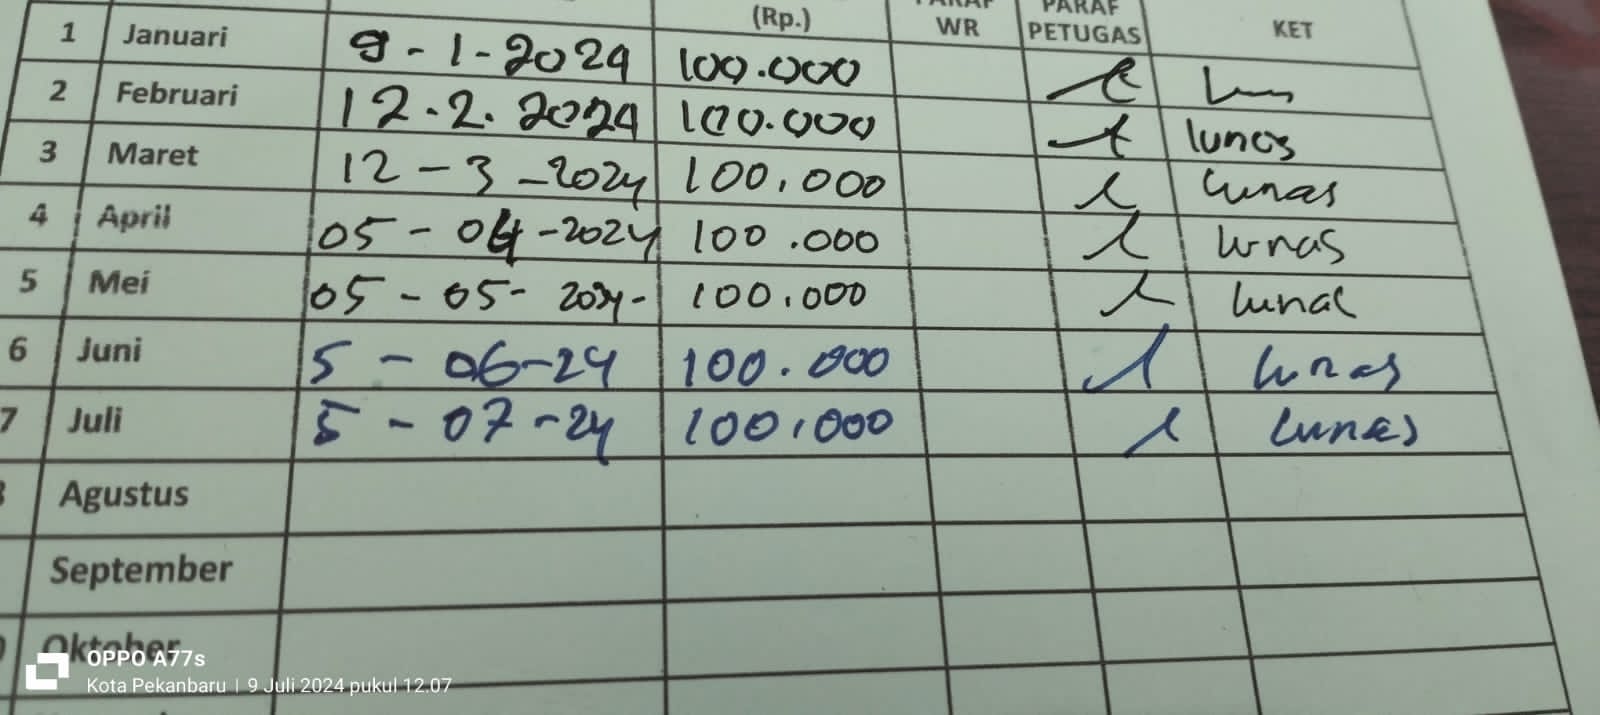 (Rp.) PARAF WR PARAF PETUGAS KET
1 Januari 9-1-2024 100.000
2 Februari 12.2.2024 100.000 lunas
3 Maret 12-3-2024 100.000 lunas
4 April 05-04-2024 100.000 lunas
5 Mei 05-05-2024- 100.000 lunas
6 Juni 5-06-24 100.000 lunas
7 Juli 5-07-24 100.000 lunas
Agustus
September
Oktober
OPPO A77s
Kota Pekanbaru | 9 Juli 2024 pukul 12.07